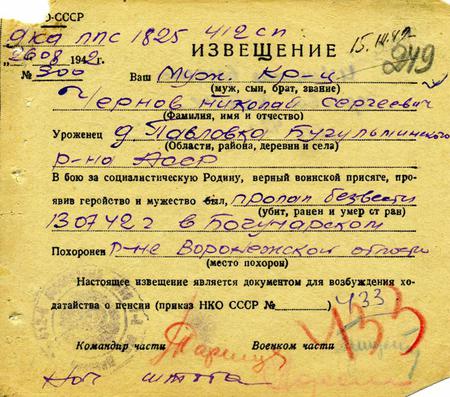 НКО-СССР
дка ппс 1825 412 сп
ИЗВЕЩЕНИЕ 15.14.82 249
"26 08 1942г.
№ 300 Ваш Муж. Кр-ц
(муж, сын, брат, звание)
Чернов Николай Сергеевич
(Фамилия, имя и отчество)
Уроженец д. Павловка Бугульминского
(Области, района, деревни и села)
р-на АССР
В бою за социалистическую Родину, верный воинской присяге, про-
явив геройство и мужество был, пропал безвести
(убит, ранен и умер от ран)
13 07 42 г в Богучарском
Похоронен р-не Воронежской области
(место похорон)
Настоящее извещение является документом для возбуждения хо-
датайства о пенсии (приказ НКО СССР № 433)
433
Командир части Военком части
Нач штаба